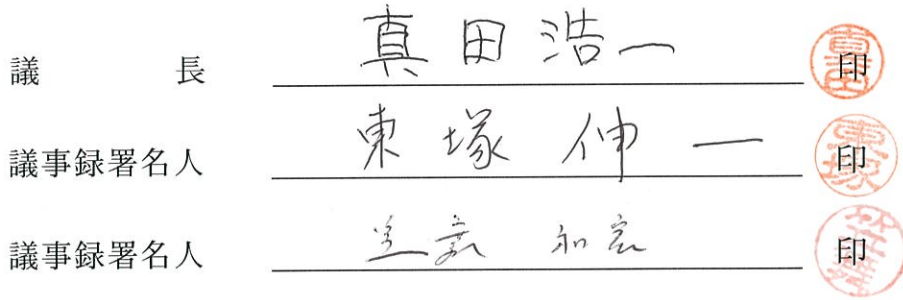 議長 真田浩一 印
議事録署名人 東塚伸一 印
議事録署名人 印